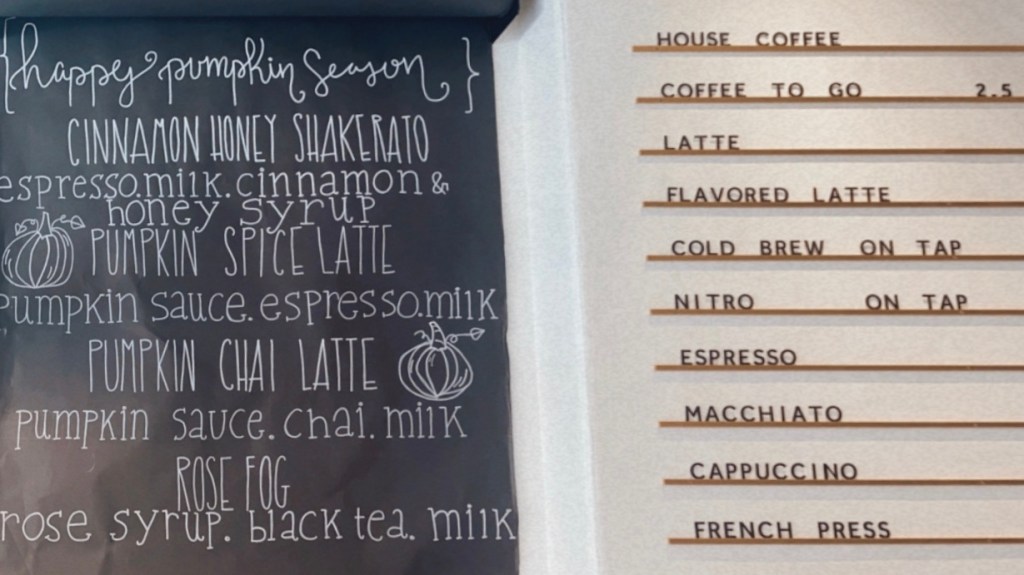 {happy pumpkin season}
CINNAMON HONEY SHAKERATO
espresso.milk.cinnamon &
honey syrup
PUMPKIN SPICE LATTE
pumpkin sauce.espresso.milk
PUMPKIN CHAI LATTE
pumpkin sauce.chai.milk
ROSE FOG
rose syrup. black tea. milk
HOUSE COFFEE
COFFEE TO GO 2.5
LATTE
FLAVORED LATTE
COLD BREW ON TAP
NITRO ON TAP
ESPRESSO
MACCHIATO
CAPPUCCINO
FRENCH PRESS